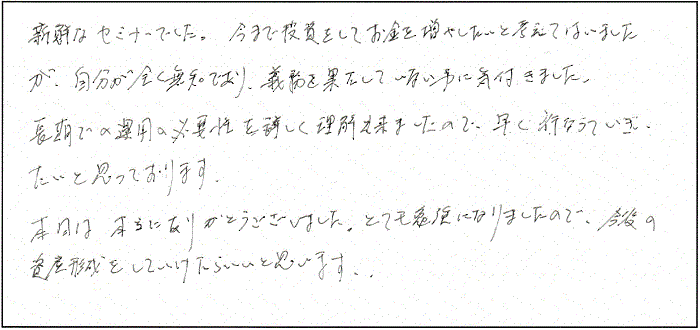 新鮮なセミナーでした。今まで投資をしてお金を増やしたいと考えてはいました
が、自分が全く無知であり、義務を果たしていない事に気付きました。
長期での運用の必要性を詳しく理解出来ましたので、早く行なっていき
たいと思っております。
本日は本当にありがとうございました。とても勉強になりましたので、今後の
資産形成をしていけたらいいと思います。